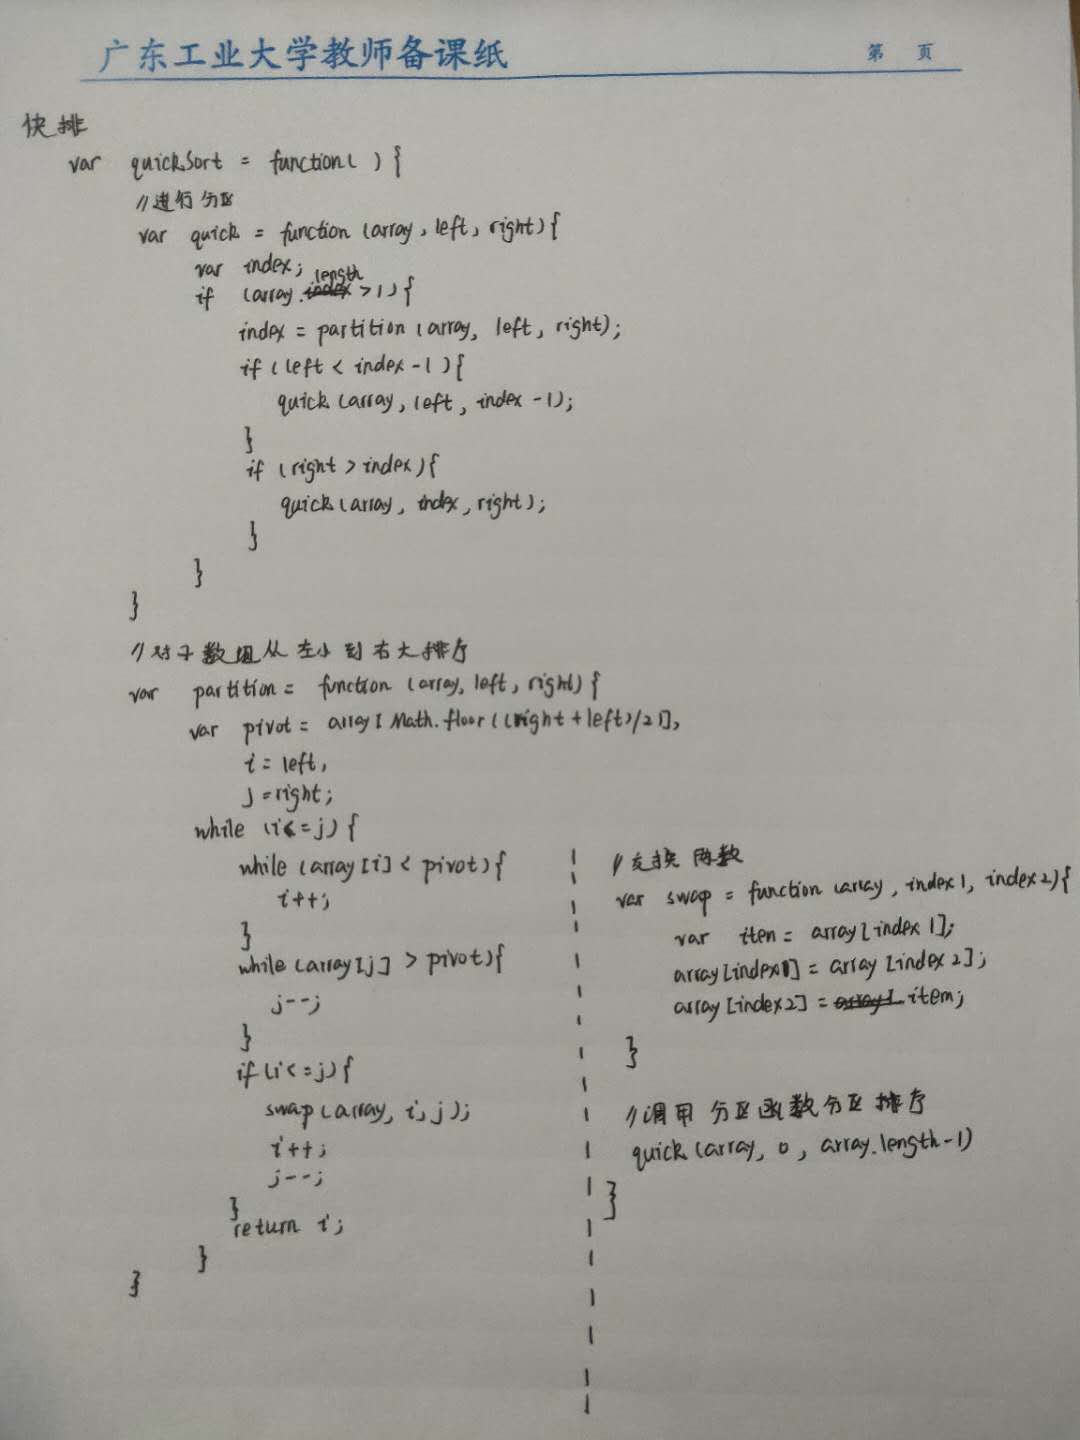 广东工业大学教师备课纸
第 页
快排
var quickSort = function( ) {
//进行分区
var quick = function (array, left, right){
var index;
if (array.length >1){
index = partition (array, left, right);
if (left < index -1 ){
quick (array, left, index -1);
}
if (right > index){
quick (array, index, right);
}
}
}
//对子数组从左小到右大排序
var partition = function (array, left, right) {
var pivot = array[ Math.floor((right + left)/2)],
i = left,
j = right;
while (i<=j) {
while (array[i] < pivot){
i++;
}
while (array[j] > pivot){
j--;
}
if(i<=j){
swap(array, i, j);
i++;
j--;
}
return i;
}
}
//交换两数
var swap = function (array, index1, index2){
var iten = array[index1];
array[index1] = array[index2];
array[index2] = item;
}
//调用分区函数分区排序
quick (array, 0, array.length-1)
}